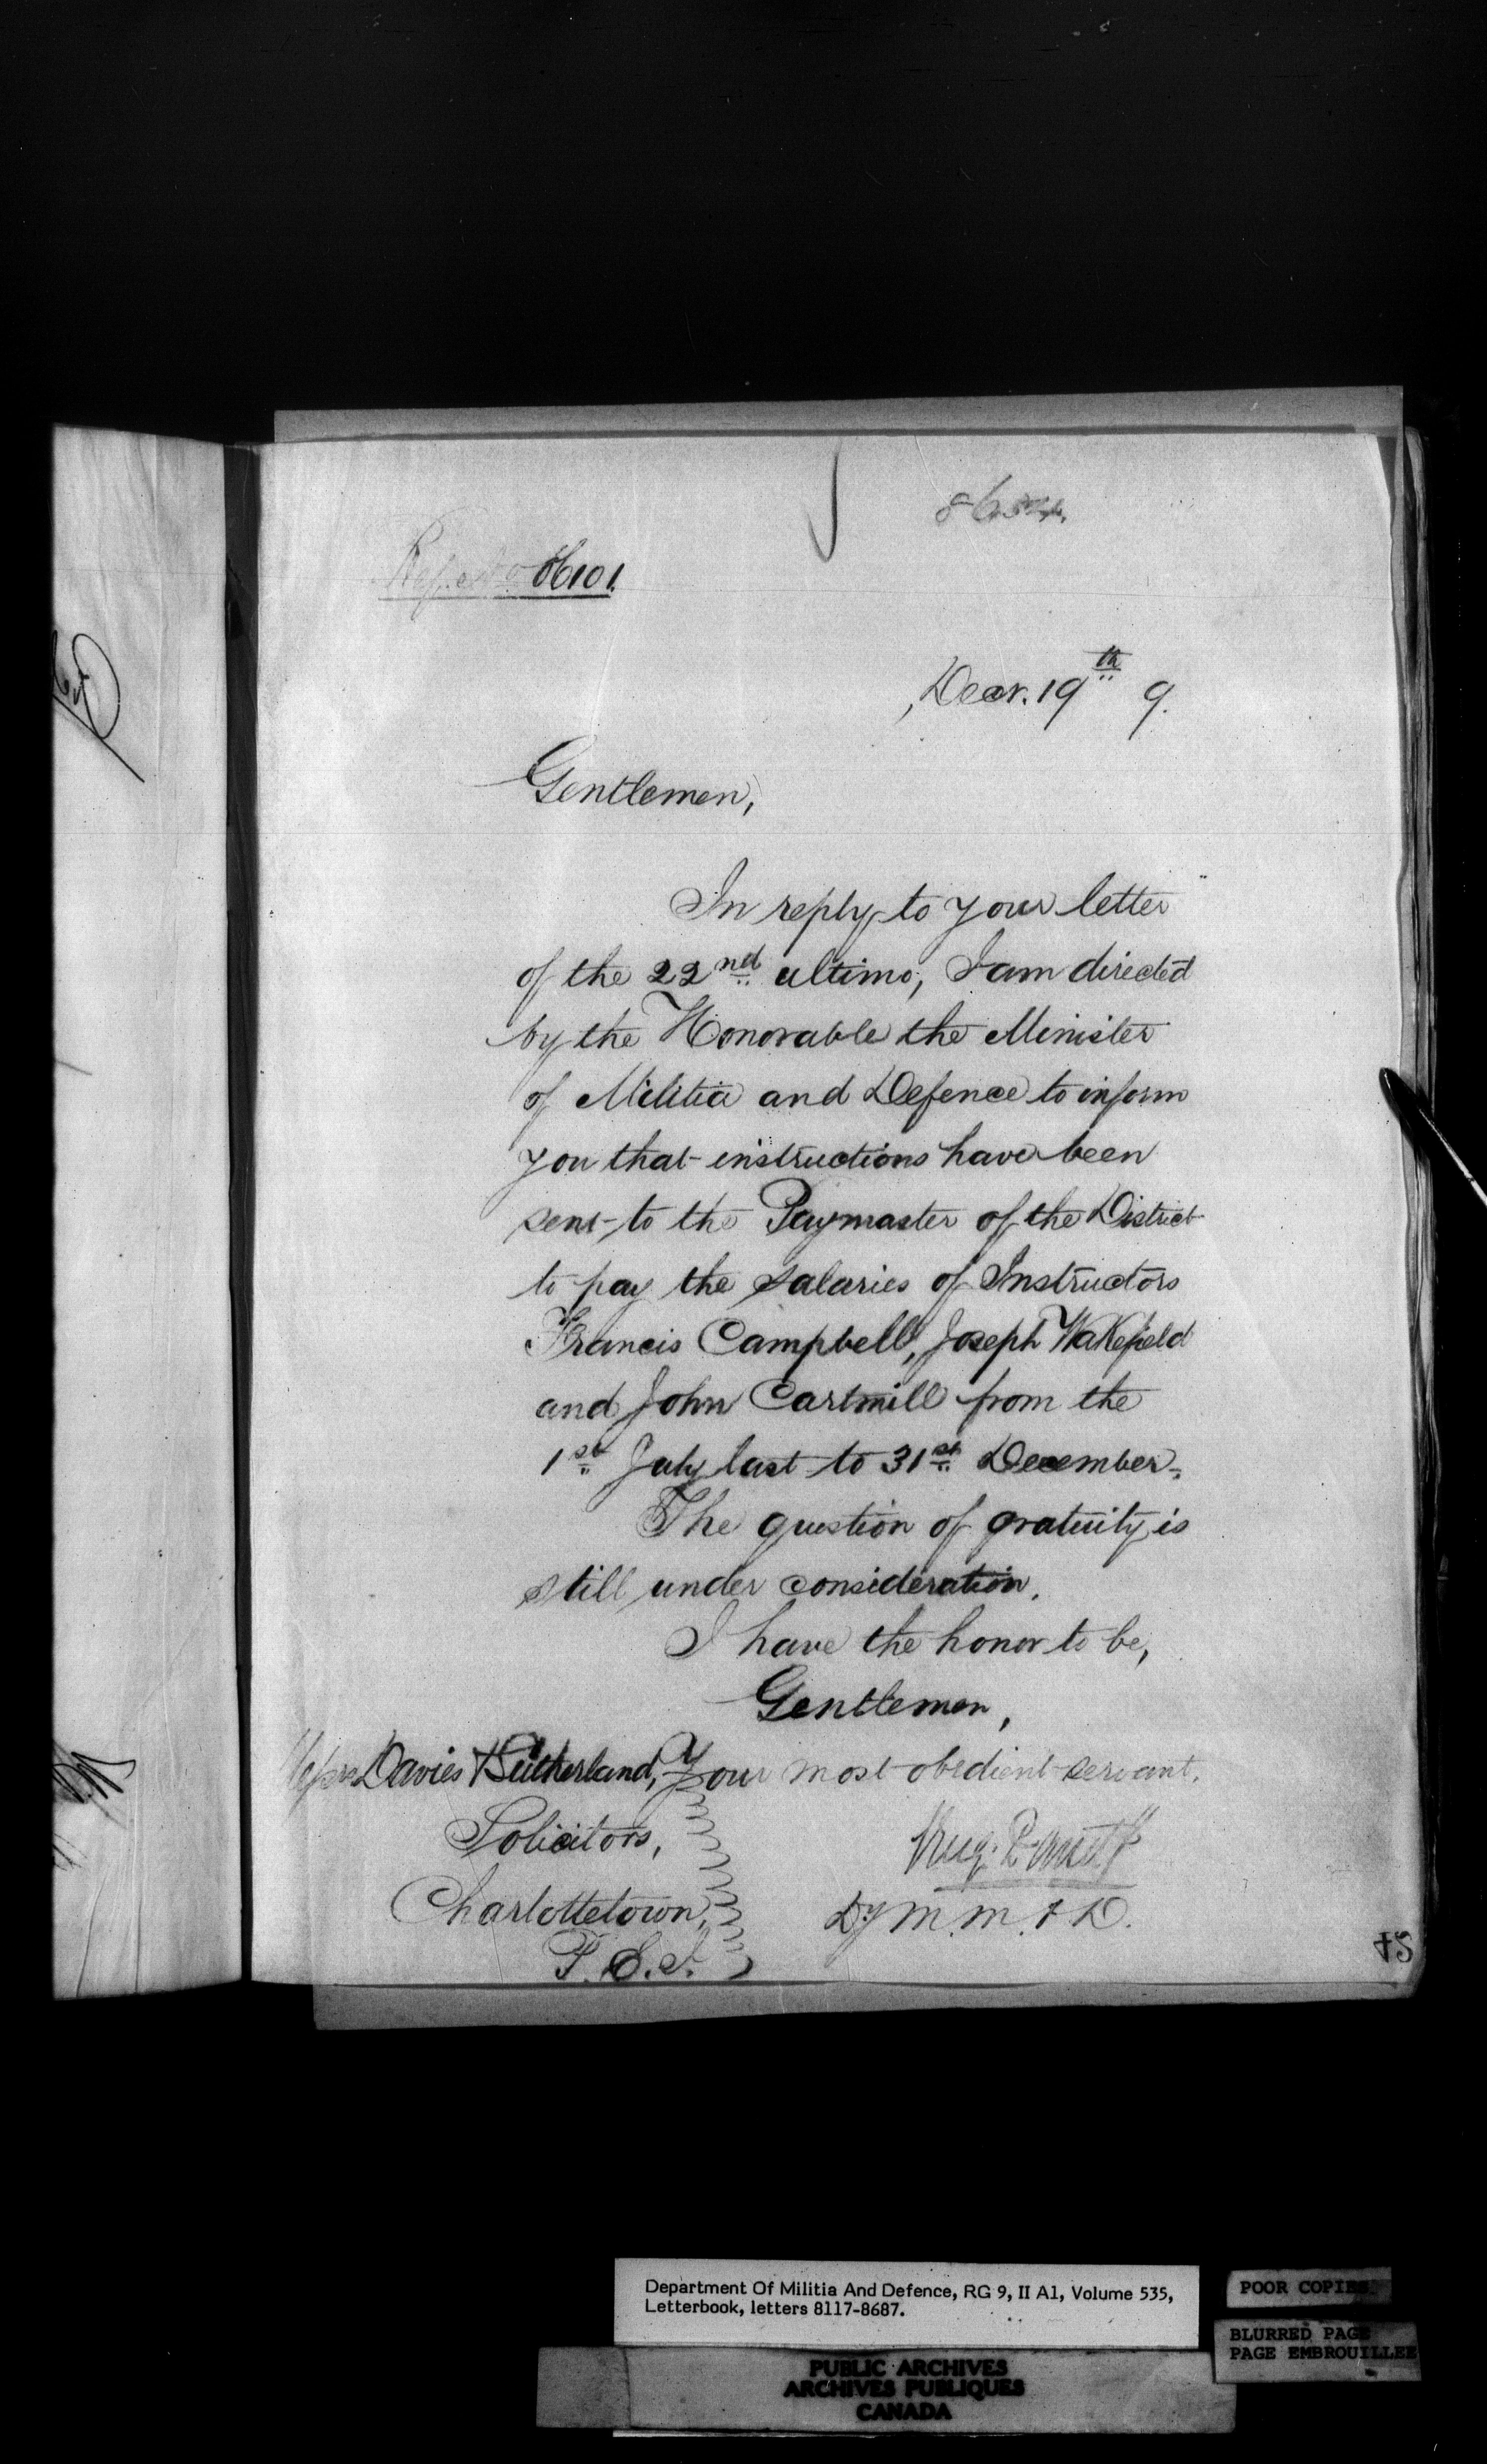 Ref. No 06101.
Decr. 19th 9.
Gentlemen,
In reply to your letter
of the 22nd ultimo, I am directed
by the Honorable the Minister
of Militia and Defence to inform
you that instructions have been
sent to the Paymaster of the District
to pay the salaries of Instructors
Francis Campbell, Joseph Wakefield
and John Cartmill from the
1st July last to 31st December.
The question of gratuity is
still under consideration.
I have the honor to be,
Gentlemen,
Your most obedient servant,
Messrs Davies & Sutherland,
Solicitors,
Charlottetown,
P. E. I.
Dy M. M. & D.
Department Of Militia And Defence, RG 9, II A1, Volume 535,
Letterbook, letters 8117-8687.
POOR COPIES
BLURRED PAGE
PAGE EMBROUILLEE
PUBLIC ARCHIVES
ARCHIVES PUBLIQUES
CANADA